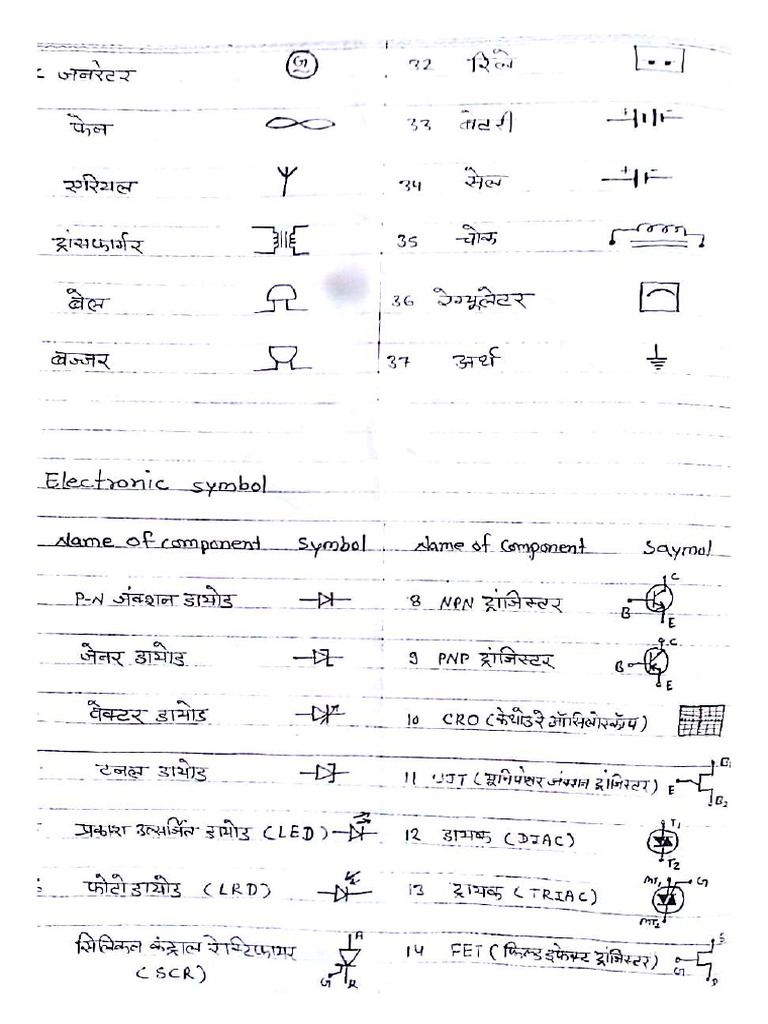 जनरेटर G 32 रिले
फेन 33 बेटरी + -
एरियल 34 सेल + -
ट्रांसफार्मर 35 चोक
बेल 36 रेग्यूलेटर
बज्जर 37 अर्थ
Electronic symbol
Name of component Symbol Name of Component Saymol
P-N जंक्शन डायोड 8 NPN ट्रांजिस्टर B C E
जेनर डायोड 9 PNP ट्रांजिस्टर B C E
वेक्टर डायोड 10 CRO (केथोड रे ऑसिलोस्कॉप)
टनल डायोड 11 UJT (यूनिपोलर जंक्शन ट्रांजिस्टर) E B1 B2
प्रकाश उत्सर्जित डायोड (LED) 12 डायक (DIAC) T1 T2
फोटो डायोड (LRD) 13 ट्रायक (TRIAC) MT1 G MT2
सिलिकन कंट्राल रेक्टिफायर A 14 FET (फिल्ड इफेक्ट ट्रांजिस्टर) S G D
(SCR) G K